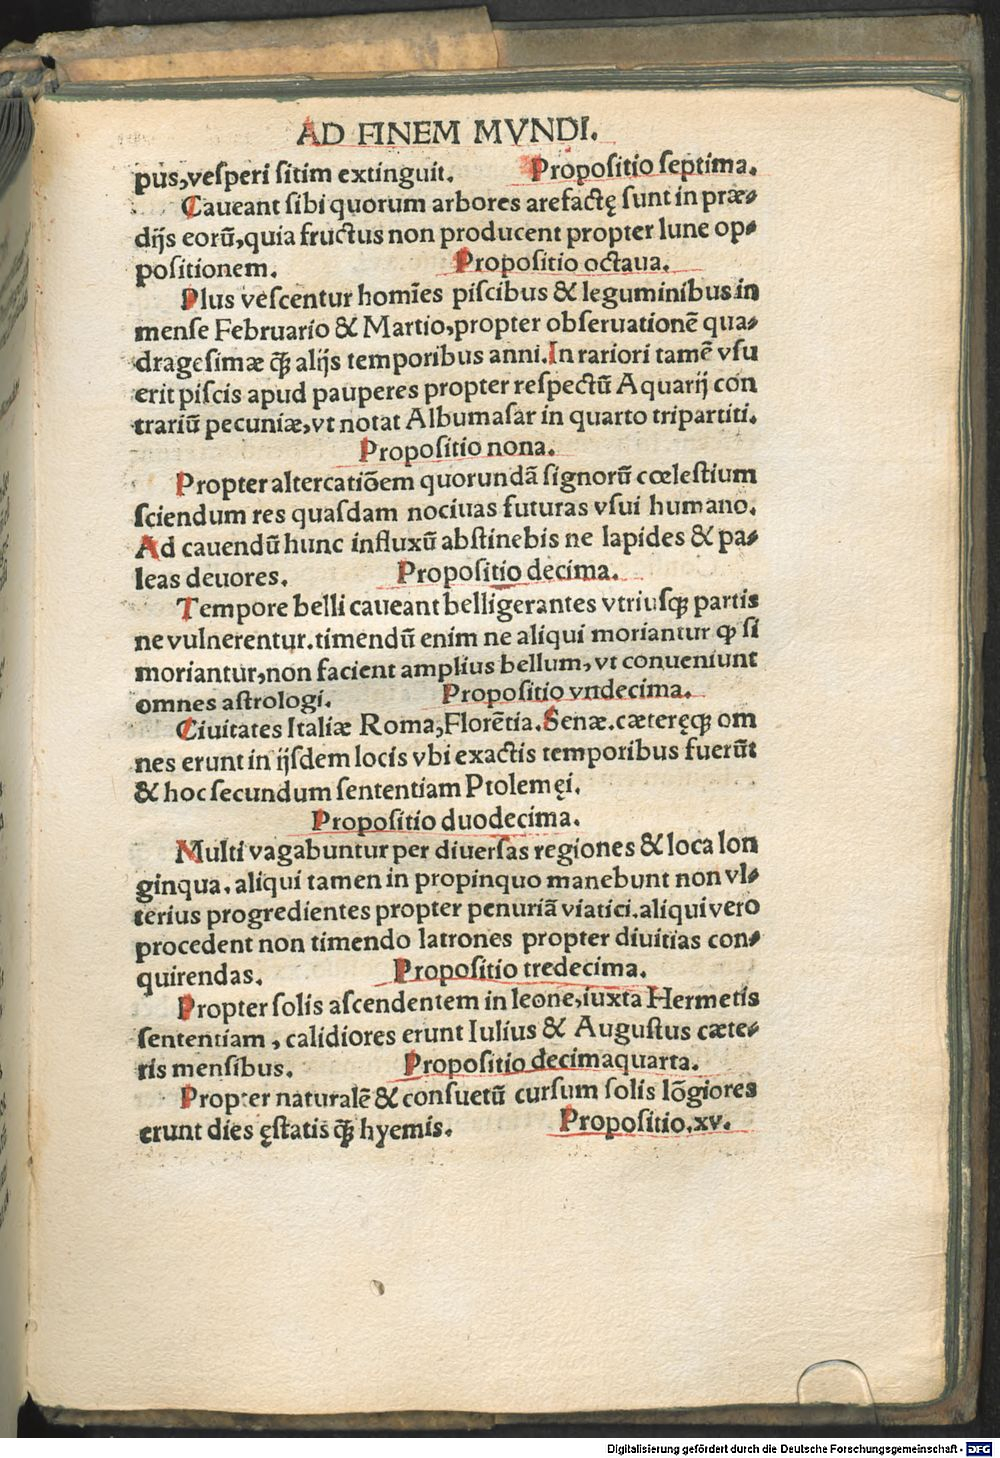 AD FINEM MVNDI.
pus,vesperi sitim extinguit. Propositio septima.
Caueant sibi quorum arbores arefactę sunt in præ-
dijs eorū,quia fructus non producent propter lune op-
positionem. Propositio octaua.
Plus vescentur homīes piscibus & leguminibus in
mense Februario & Martio,propter obseruationē qua-
dragesimæ q̄ꝫ alijs temporibus anni.In rariori tamē vsu
erit piscis apud pauperes propter respectū Aquarij con
trariū pecuniæ,vt notat Albumasar in quarto tripartiti.
Propositio nona.
Propter altercatiōem quorundā signorū cœlestium
sciendum res quasdam nociuas futuras vsui humano.
Ad cauendū hunc influxū abstinebis ne lapides & pa-
leas deuores. Propositio decima.
Tempore belli caueant belligerantes vtriusqꝫ partis
ne vulnerentur.timendū enim ne aliqui moriantur ꝙ si
moriantur,non facient amplius bellum,vt conueniunt
omnes astrologi. Propositio vndecima.
Ciuitates Italiæ Roma,Florētia.Senæ.cæteręqꝫ om
nes erunt in ijsdem locis vbi exactis temporibus fuerūt
& hoc secundum sententiam Ptolemęi.
Propositio duodecima.
Multi vagabuntur per diuersas regiones & loca lon
ginqua.aliqui tamen in propinquo manebunt non vl-
terius progredientes propter penuriā viatici.aliqui vero
procedent non timendo latrones propter diuitias con-
quirendas. Propositio tredecima.
Propter solis ascendentem in leone,iuxta Hermetis
sententiam, calidiores erunt Iulius & Augustus cæte-
ris mensibus. Propositio decimaquarta.
Propter naturalē & consuetū cursum solis lōgiores
erunt dies ęstatis q̄ꝫ hyemis. Propositio.xv.
Digitalisierung gefördert durch die Deutsche Forschungsgemeinschaft - DFG